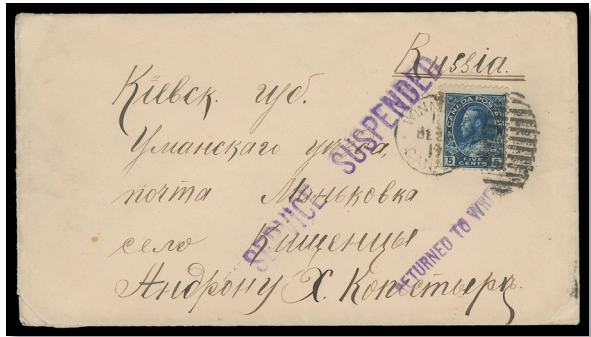 Russia.
Кіевск. губ.
Уманскаго уезда,
почта Маньковка
село Кищенцы
Андрону Х.
SERVICE SUSPENDED
RETURNED TO
CANADA POSTAGE
5 FIVE CENTS 5